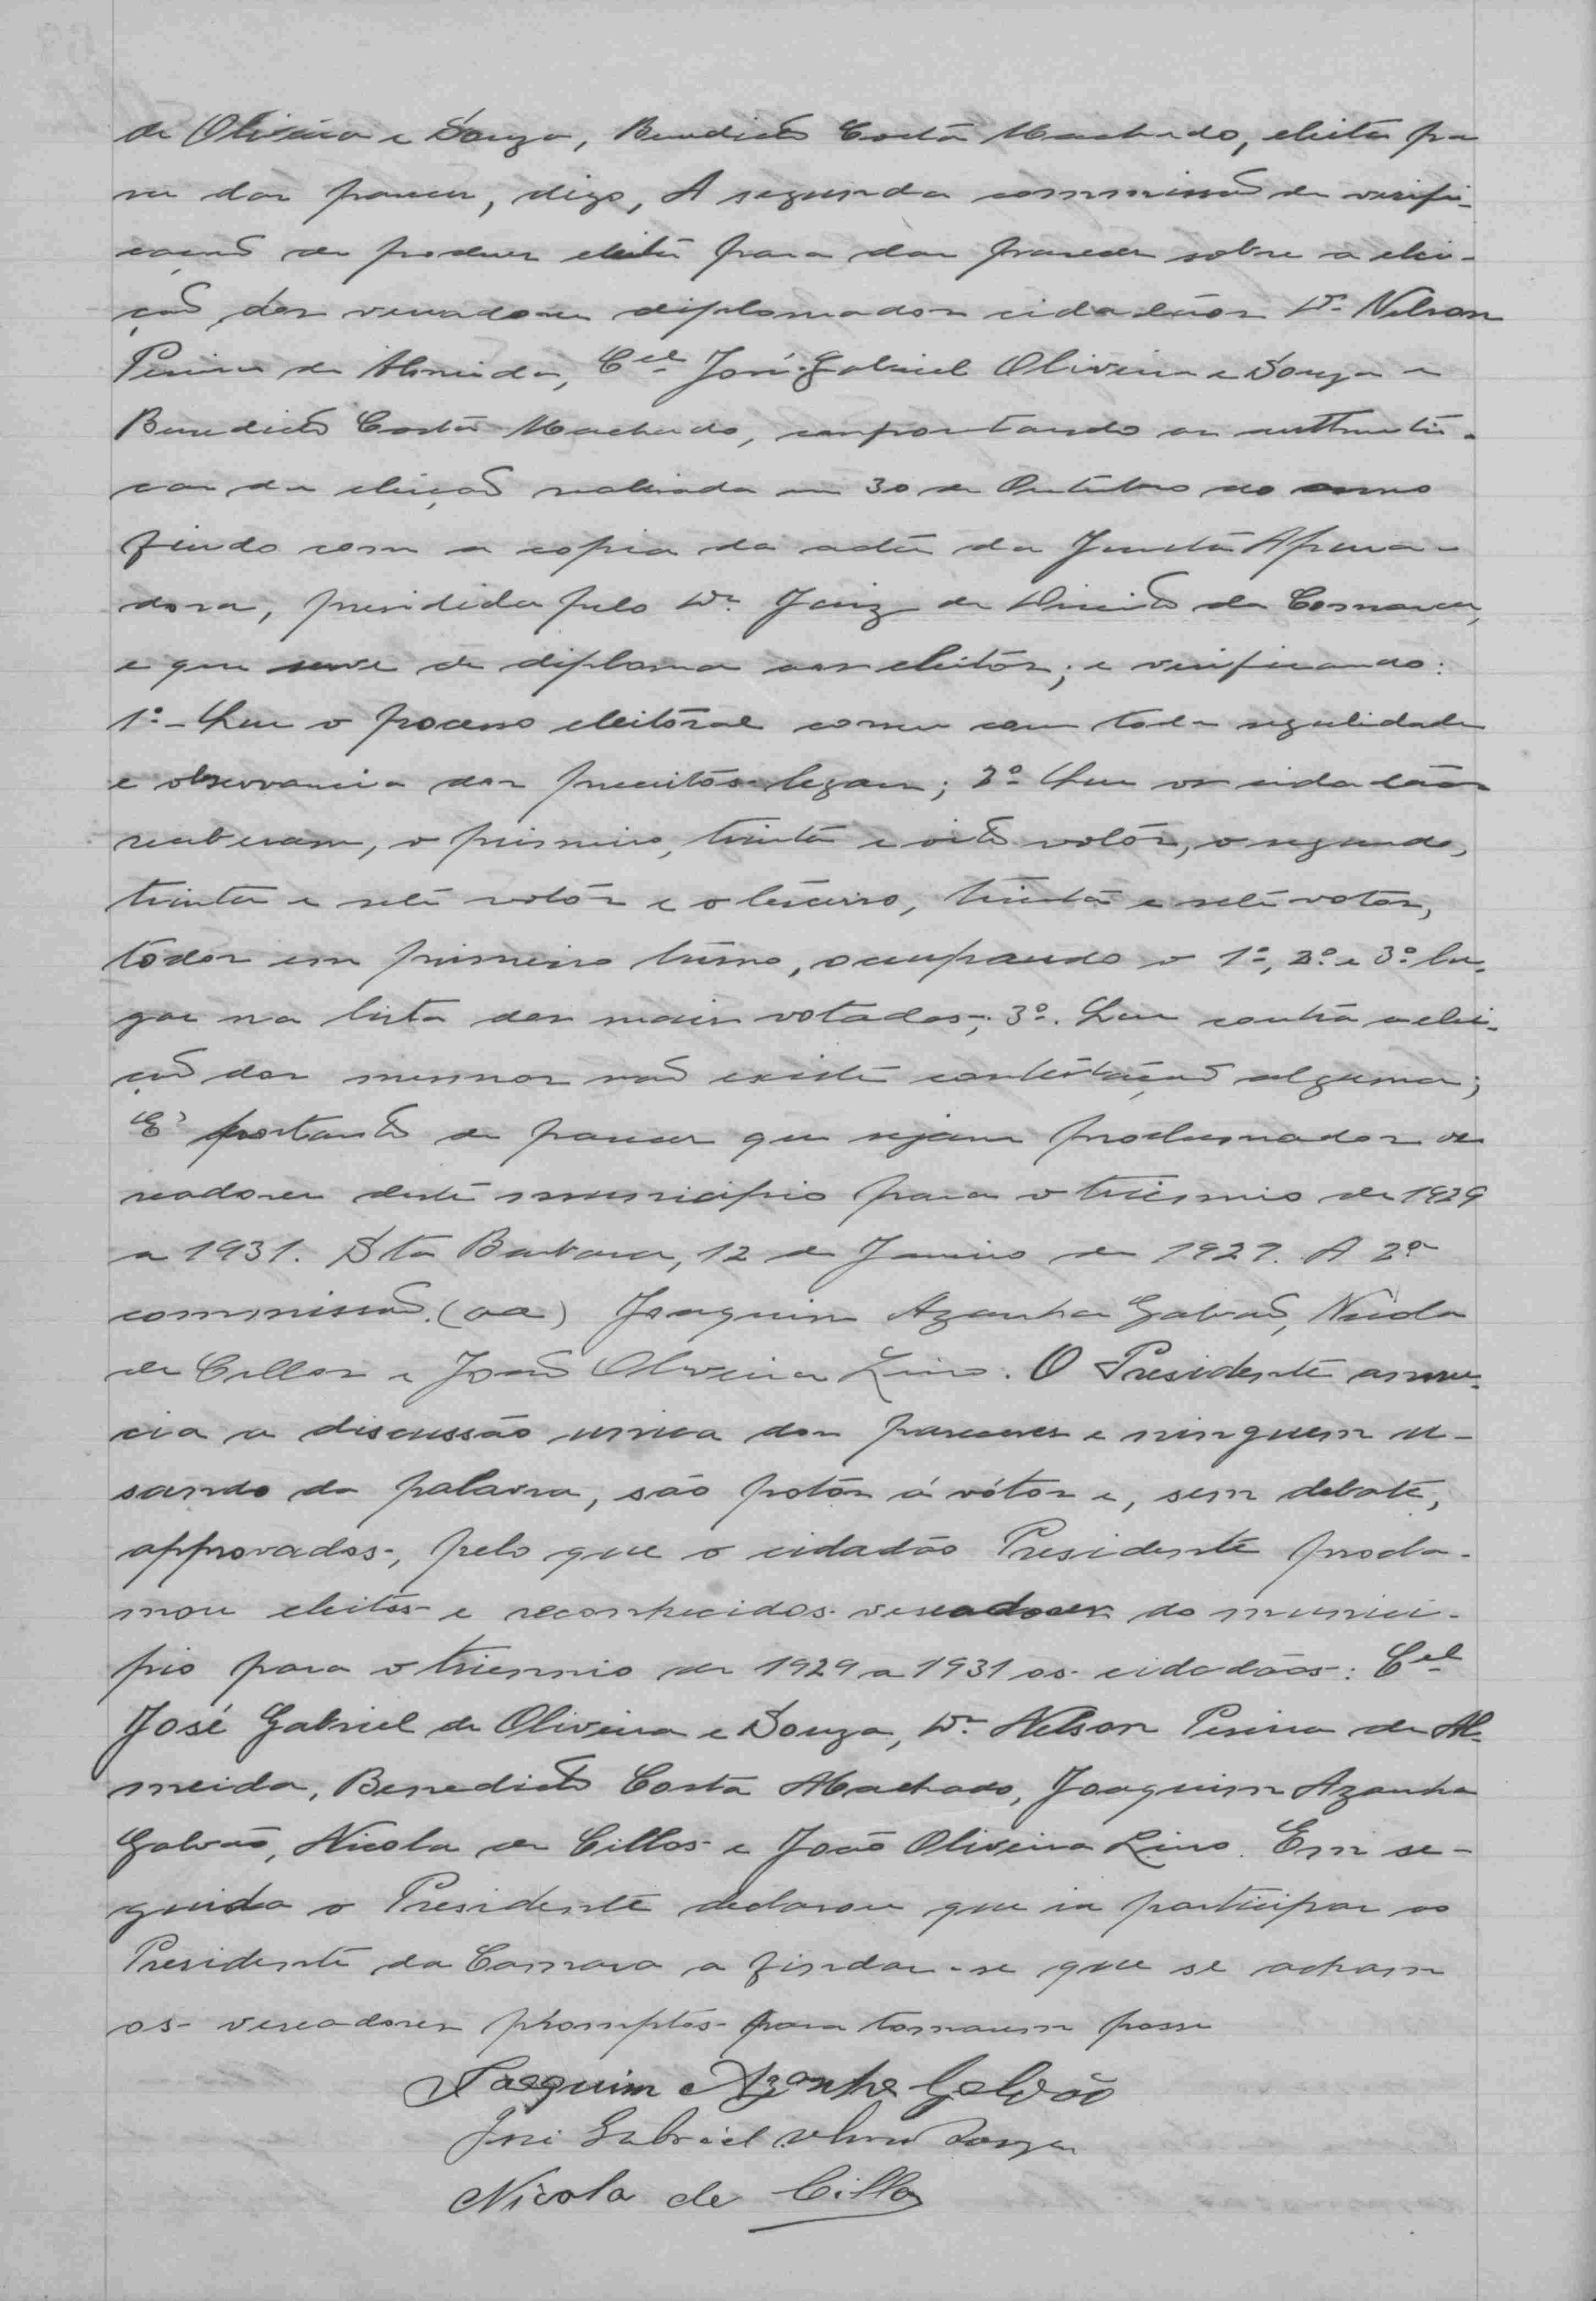 de Oliveira e Souza, Benedicto Costa Machado, eleita pa
ra dar parecer, digo, A segunda commissão de verifi-
cação de poderes eleita para dar parecer sobre a elei-
ção dos vereadores diplomados cidadãos Dr. Nelson
Pereira de Almeida, Cel José Gabriel Oliveira e Souza e
Benedicto Costa Machado, confrontando as authenti-
cas da eleição realisada em 30 de Outubro do anno
findo com a copia da acta da Junta Apura-
dora, presidida pelo Dr. Juiz de Direito da Comarca,
e que serve de diploma aos eleitos; e verificando:
1º - Que o processo eleitoral correu com toda regulidade
e observancia dos preceitos legaes; 2º Que os cidadãos
receberam, o primeiro, trinta e oito votos, o segundo,
trinta e sete votos e o terceiro, trinta e sete votos,
todos em primeiro turno, occupando o 1º, 2º e 3º lu-
gar na lista dos mais votados; 3º. Que contra a elei-
ção dos mesmos não existe contestação alguma;
E' portanto de parecer que sejam proclamados ve
readores deste municipio para o triennio de 1929
a 1931. Sta Barbara, 12 de Janeiro de 1929. A 2ª
commissão. (aa) Joaquim Azanha Galvão, Nicola
de Cillos e João Oliveira Lino. O Presidente annu-
cia a discussão unica dos pareceres e ninguem u-
sando da palavra, são postos á vótos e, sem debate,
approvados, pelo que o cidadão Presidente procla-
mou eleitos e reconhecidos vereadores do munici-
pio para o triennio de 1929 a 1931 os cidadãos: Cel
José Gabriel de Oliveira e Souza, Dr. Nelson Pereira de Al-
meida, Benedicto Costa Machado, Joaquim Azanha
Galvão, Nicola de Cillos e João Oliveira Lino. Em se-
guida o Presidente declarou que ia participar ao
Presidente da Camara a findar-se que se acham
os vereadores promptos para tomarem posse
Joaquim Azanha Galvão
José Gabriel Souza
Nicola de Cillos